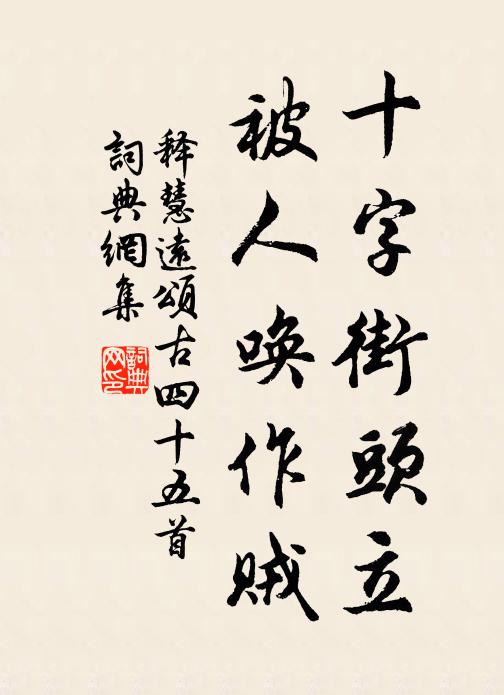 十字街頭立
被人唤作贼
释慧遠頌古四十五首
詞典網集
詞典网印